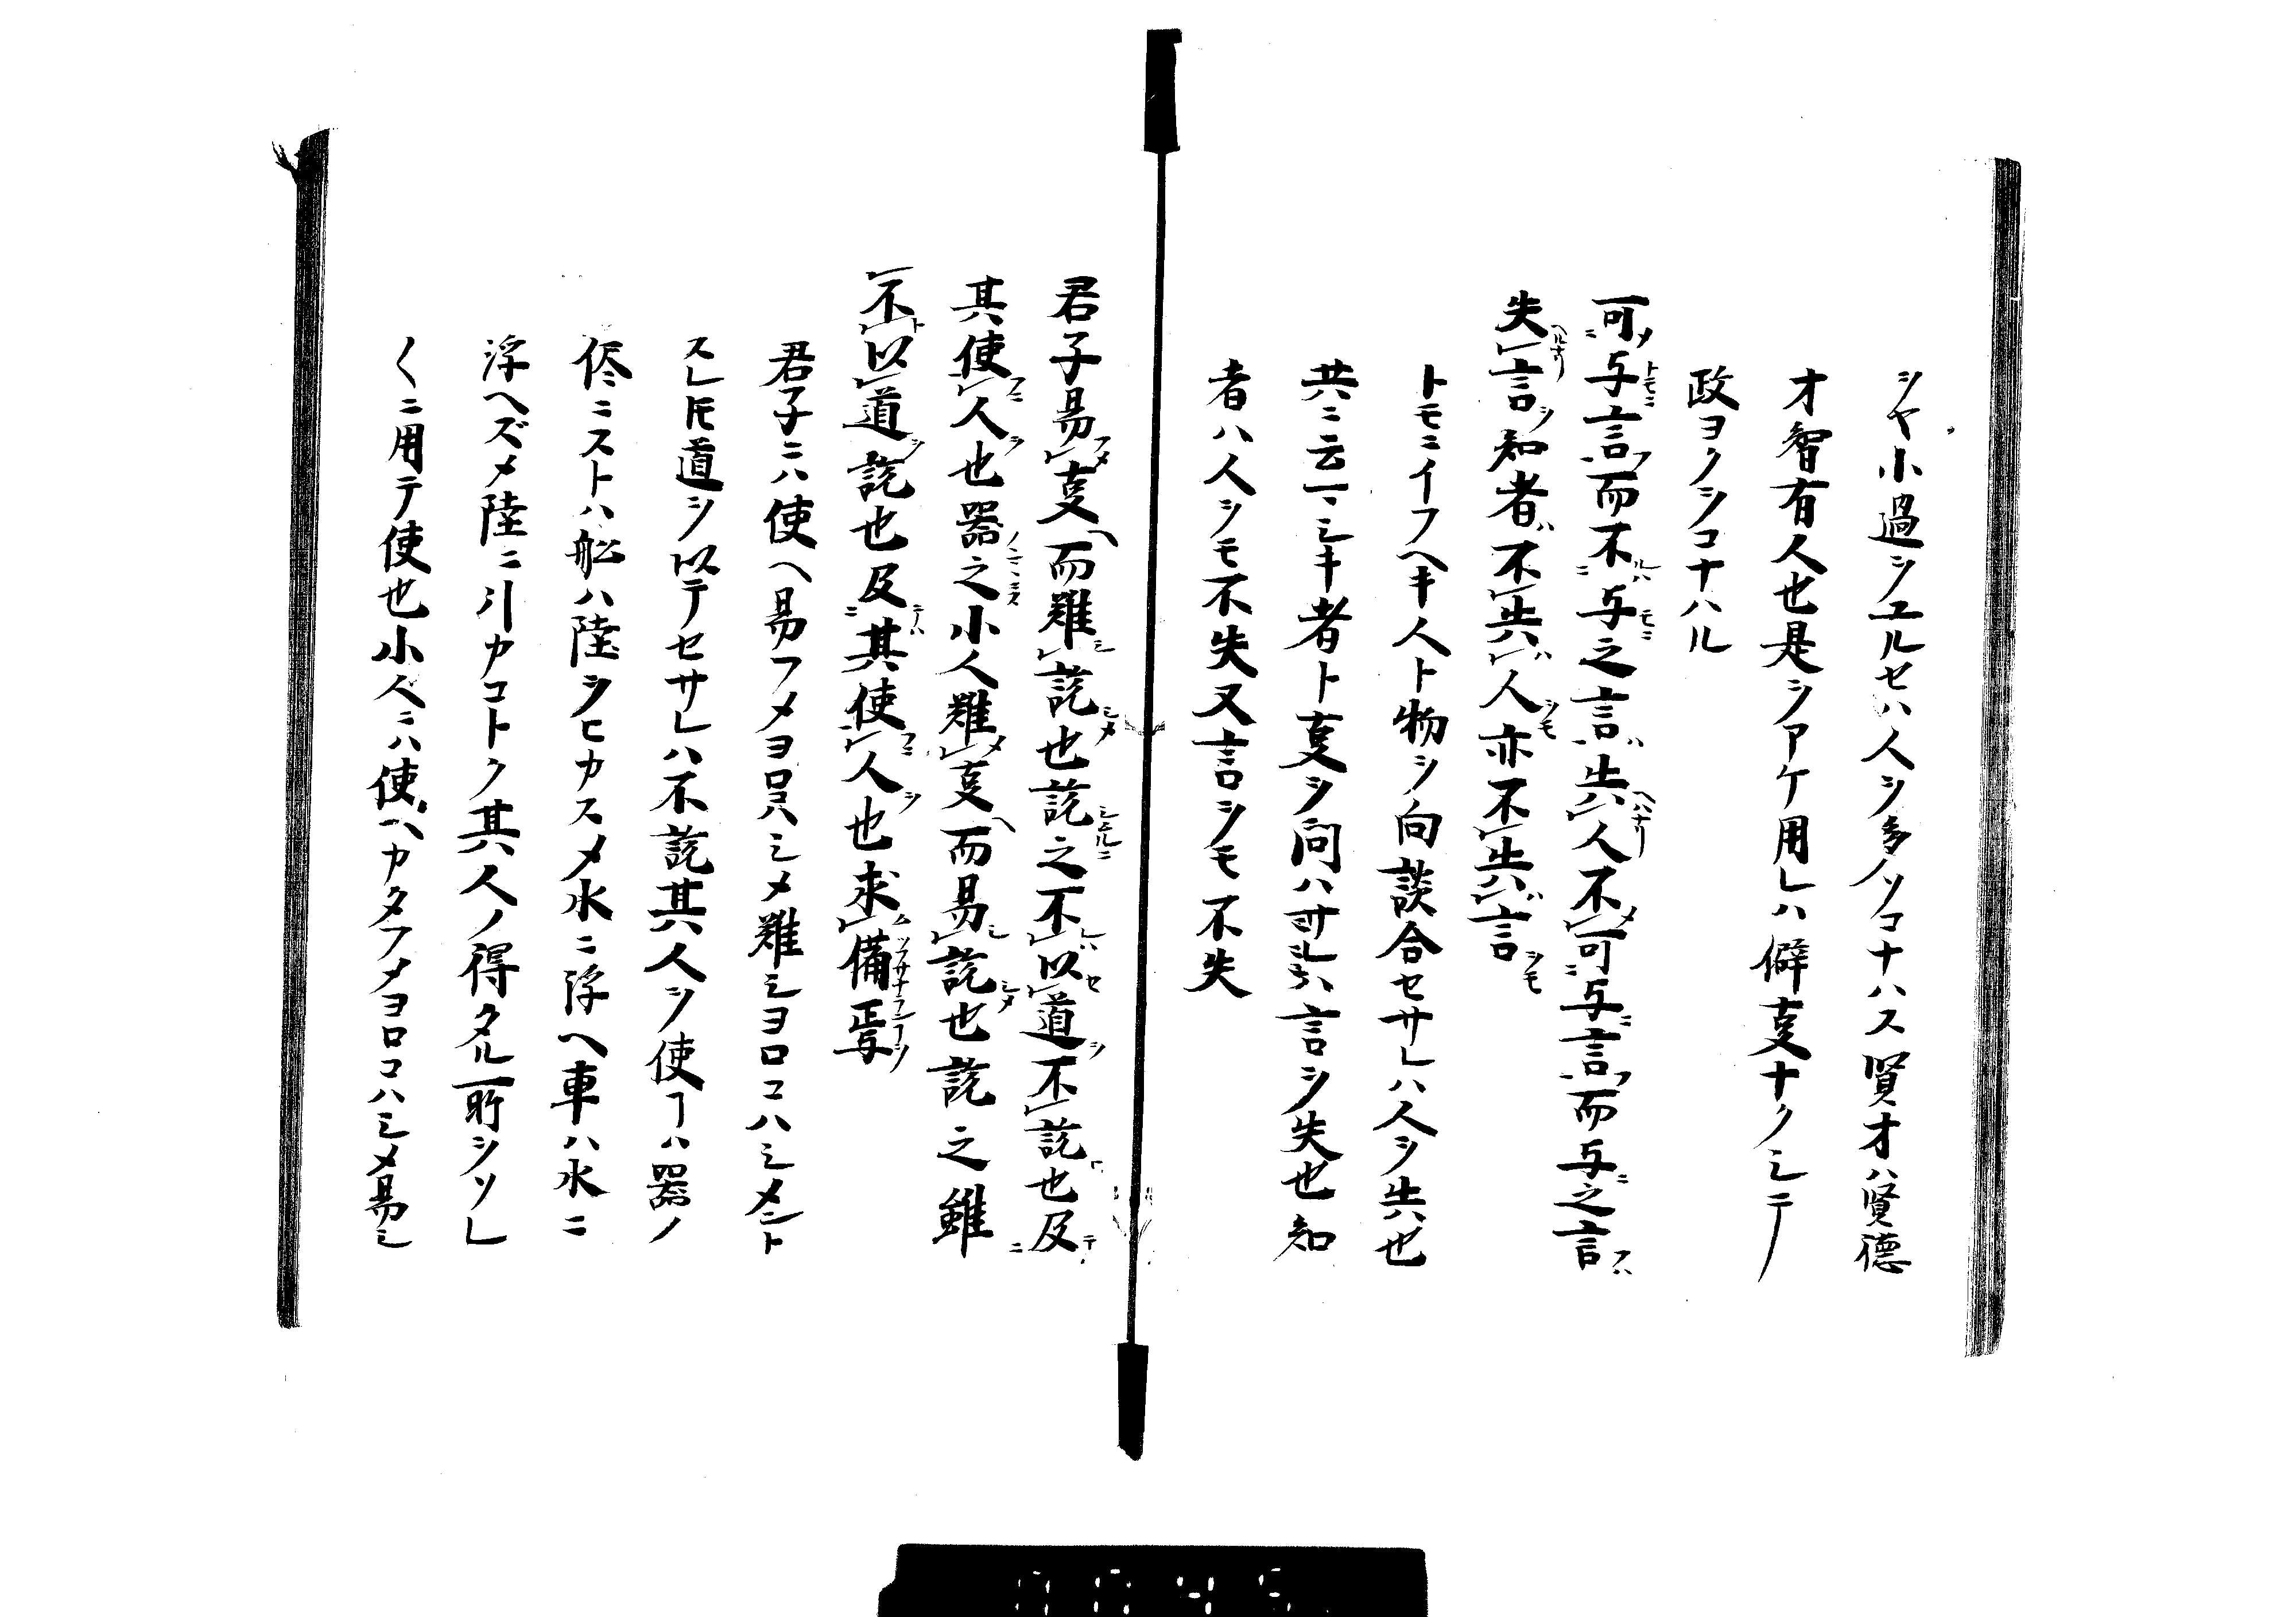 シヤ小過シユルセハ人シ多ソコナハス賢才ハ賢德
才智有人也是シアケ用レハ僻叓ナクシテ
政ヨクシコナハル
可与言而不与之言失人不可与言而与之言
失言知者不失人亦不失言
トモニイフヘキ人ト物シ向談合セサレハ人シ失也
共ニ云マシキ者ト叓シ問ハ言シ失也知
者ハ人シモ不失又言シモ不失
君子易叓而難說也說之不以道不說也及
其使人也器之小人難叓而易說也說之雖
不以道說也及其使人也求備焉
君子ニハ使ヘ易フメヨロコハシメ難シヨロコハシメント
スレ𪜈道シ以テセサレハ不說其人シ使ヿハ器ノ
侭ニストハ舩ハ陸シヒカスメ水ニ浮ヘ車ハ水ニ
浮ヘズメ陸ニ引カコトク其人ノ得タル所シソレ
〱ニ用テ使也小人ニハ使ヘカタフメヨロコハシメ易シ